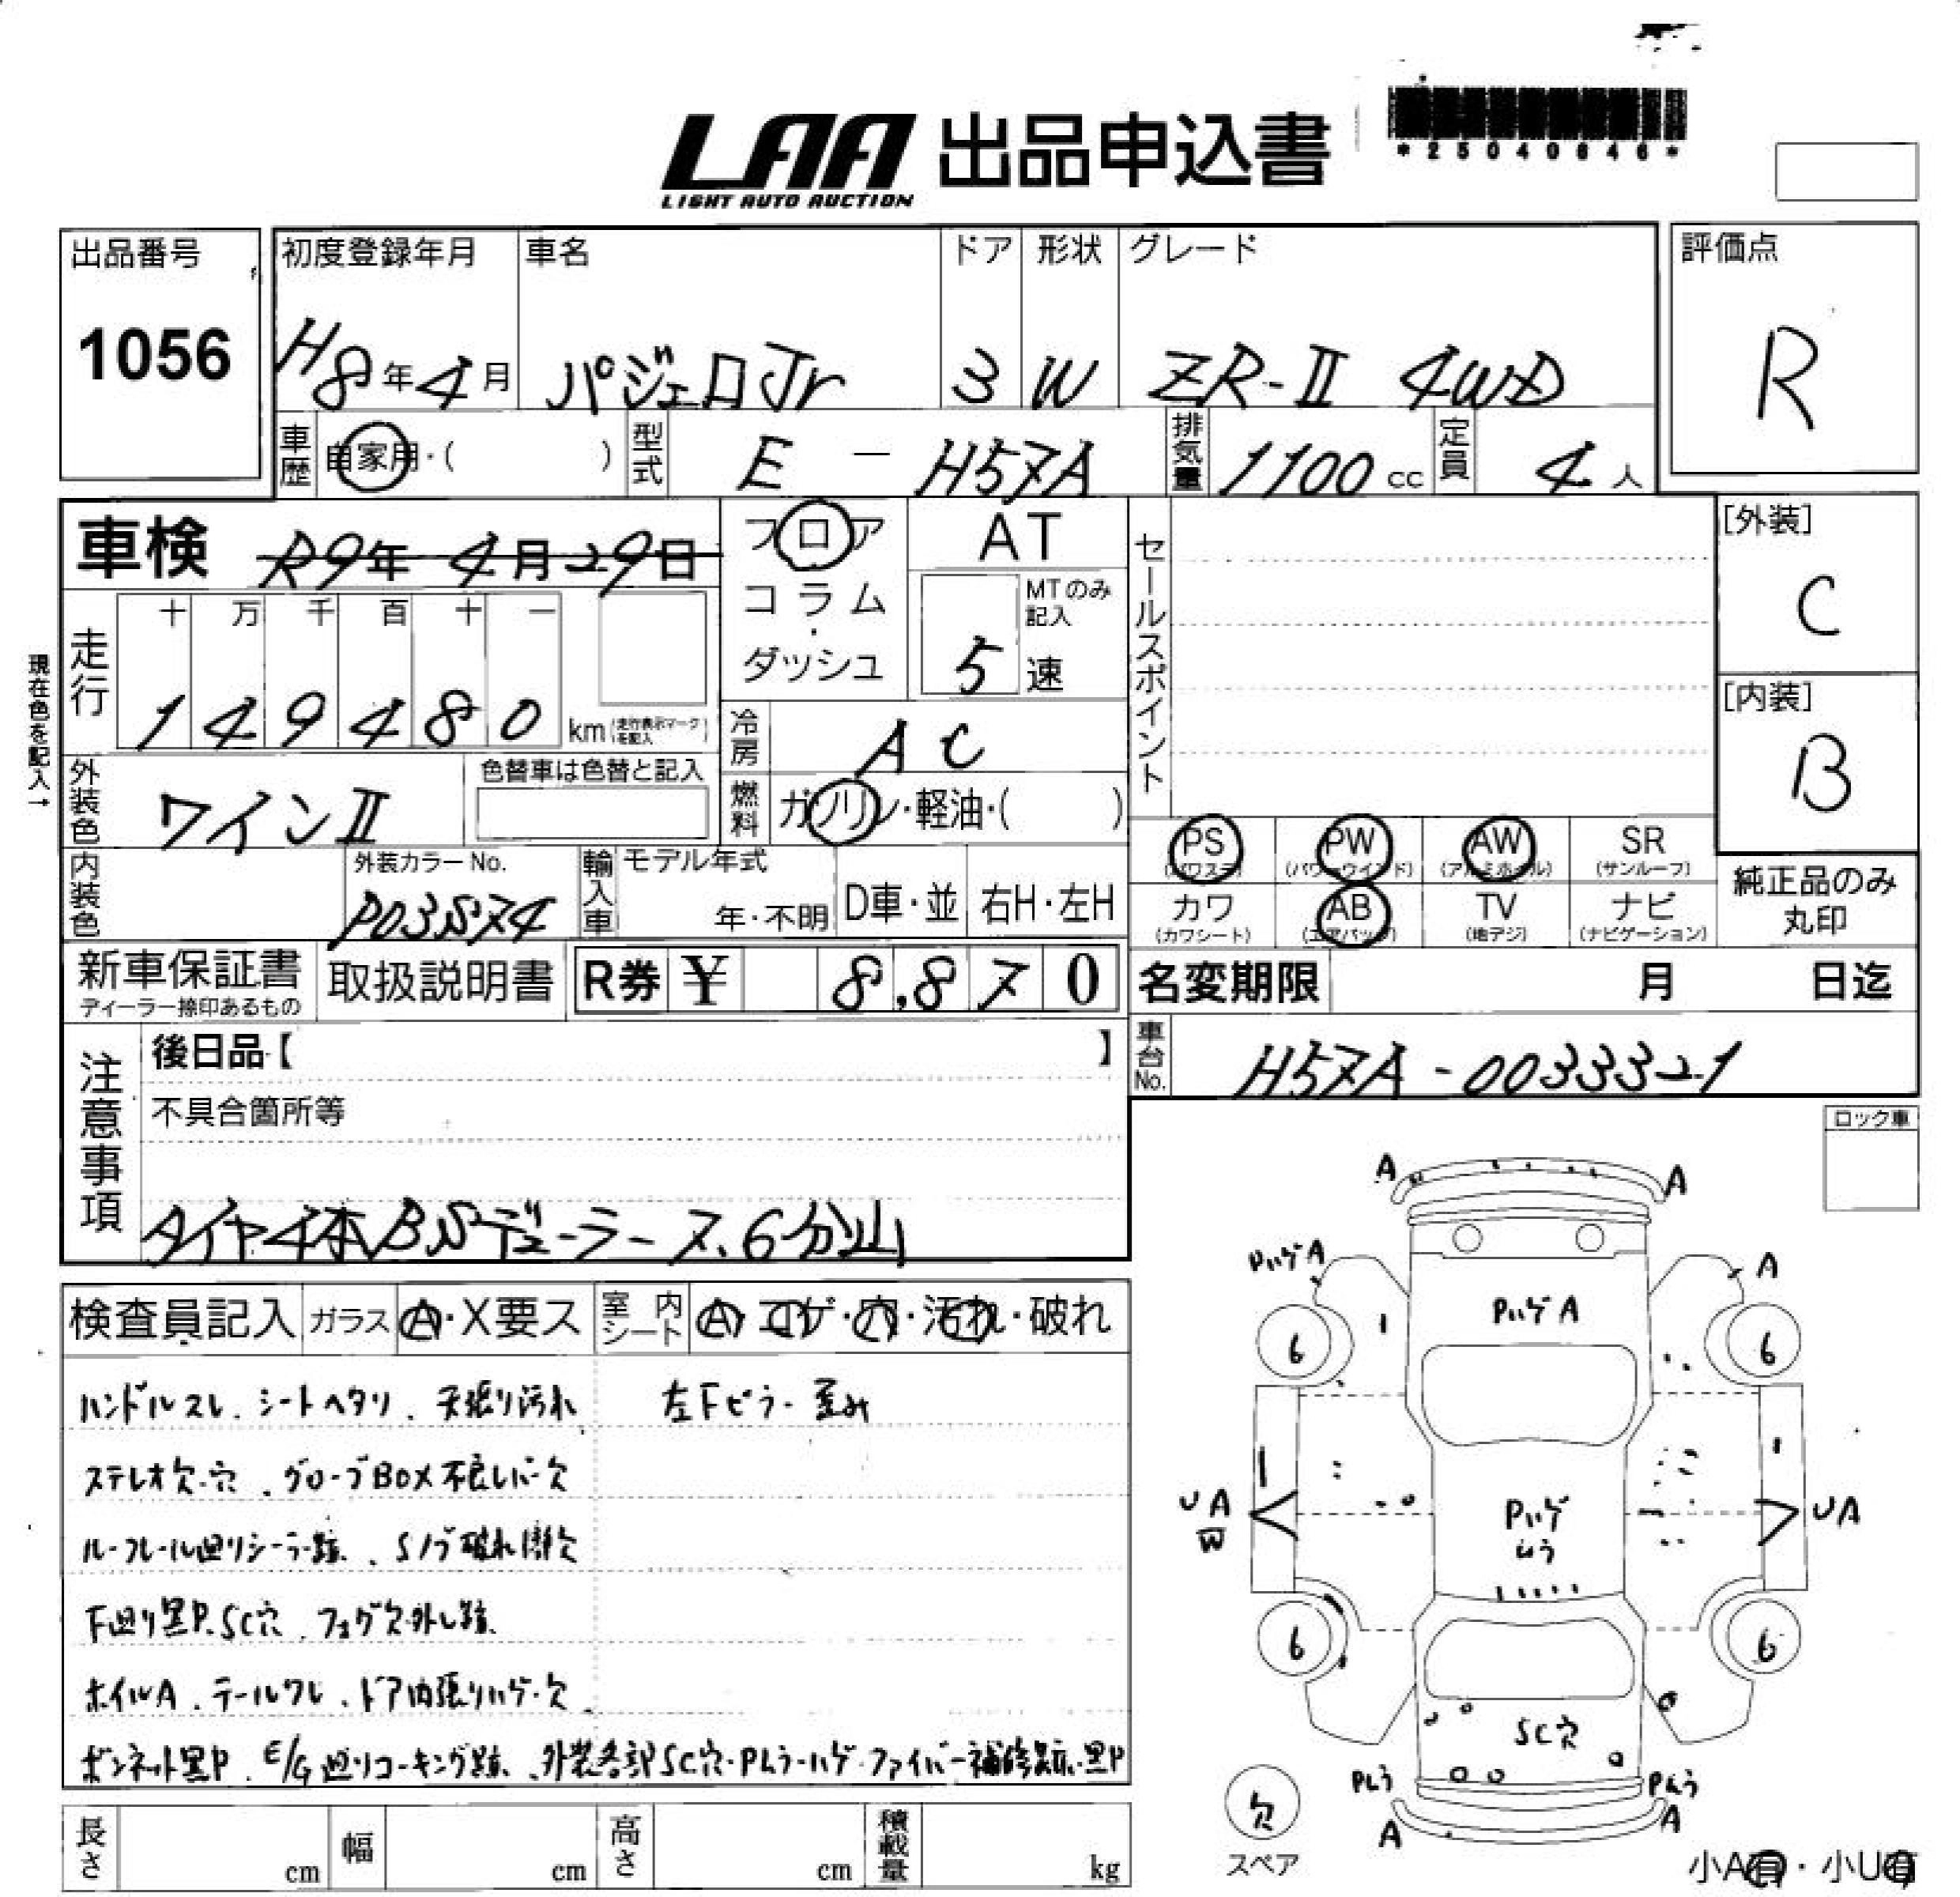 LAA 出品申込書
LIGHT AUTO AUCTION
*25040646*
出品番号
1056
初度登録年月
H8年4月
車名
パジェロJr
ドア
3
形状
W
グレード
ZR-II 4WD
評価点
R
車歴 自家用・( )
型式 E - H57A
排気量 1100 cc
定員 4人
車検 R9年 4月29日
フロア
コラム
・
ダッシュ
AT
MTのみ
記入
5 速
セールスポイント
[外装]
C
[内装]
B
現在色を記入→
走行
十 万 千 百 十 一
1 4 9 4 8 0 km (走行表示マークを記入)
冷房 AC
燃料 ガソリン・軽油・( )
外装色 ワインII
色替車は色替と記入
内装色
外装カラーNo.
P03S74
輸入車
モデル年式
年・不明
D車・並
右H・左H
PS
(パワステ)
PW
(パワーウインド)
AW
(アルミホイル)
SR
(サンルーフ)
カワ
(カワシート)
AB
(エアバッグ)
TV
(地デジ)
ナビ
(ナビゲーション)
純正品のみ
丸印
新車保証書
ディーラー捺印あるもの
取扱説明書
R券 ¥ 8,870
名変期限 月 日迄
注意事項
後日品【 】
不具合箇所等
タイヤ4本BSデューラー7.6分山
車台No. H57A-0033321
ロック車
検査員記入
ガラス A・X要ス
室内シート A・コゲ・穴・汚れ・破れ
ハンドルスレ、シートヘタリ、天張り汚れ
左Fピラー歪み
ステレオ欠・穴、グローブBOX不良レバー欠
ルーフレール廻りシーラー跡、Sノブ破れ
下廻り黒P.SC穴、フォグ欠・外し跡
ホイルA、テールワレ、ドア内張りハゲ・欠
ボンネット黒P、E/G廻りコーキング跡、外装各部SC穴・Pムラ・ハゲ・ファイバー補修跡・黒P
A
A
PハゲA
A
PハゲA
6
6
UA
W
Pハゲ
ムラ
UA
6
6
SC穴
Pムラ
Pムラ
A
A
欠
スペア
小A有・小U有
長さ cm
幅 cm
高さ cm
積載量 kg